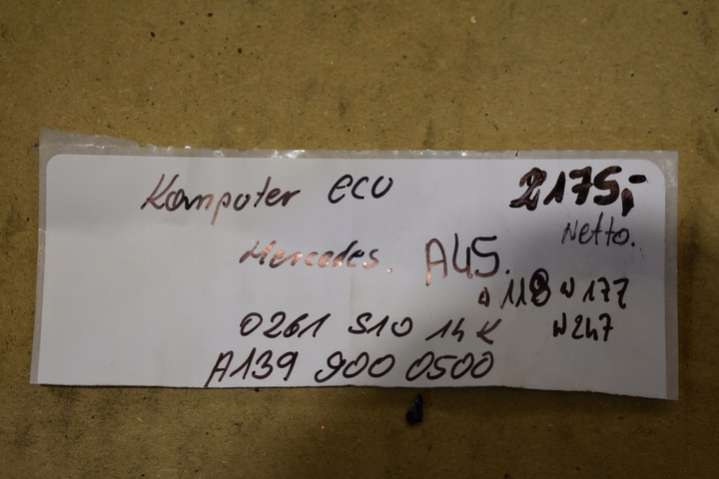 Komputer ECU 2175,-
Netto.
Mercedes. A45.
118 W 177
0261 S10 14K W247
A139 900 0500